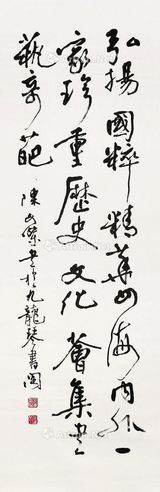 弘揚國粹精華四海內外一
家珍重歷史文化薈集書
藝奇葩
陳文書於九龍琴書閣